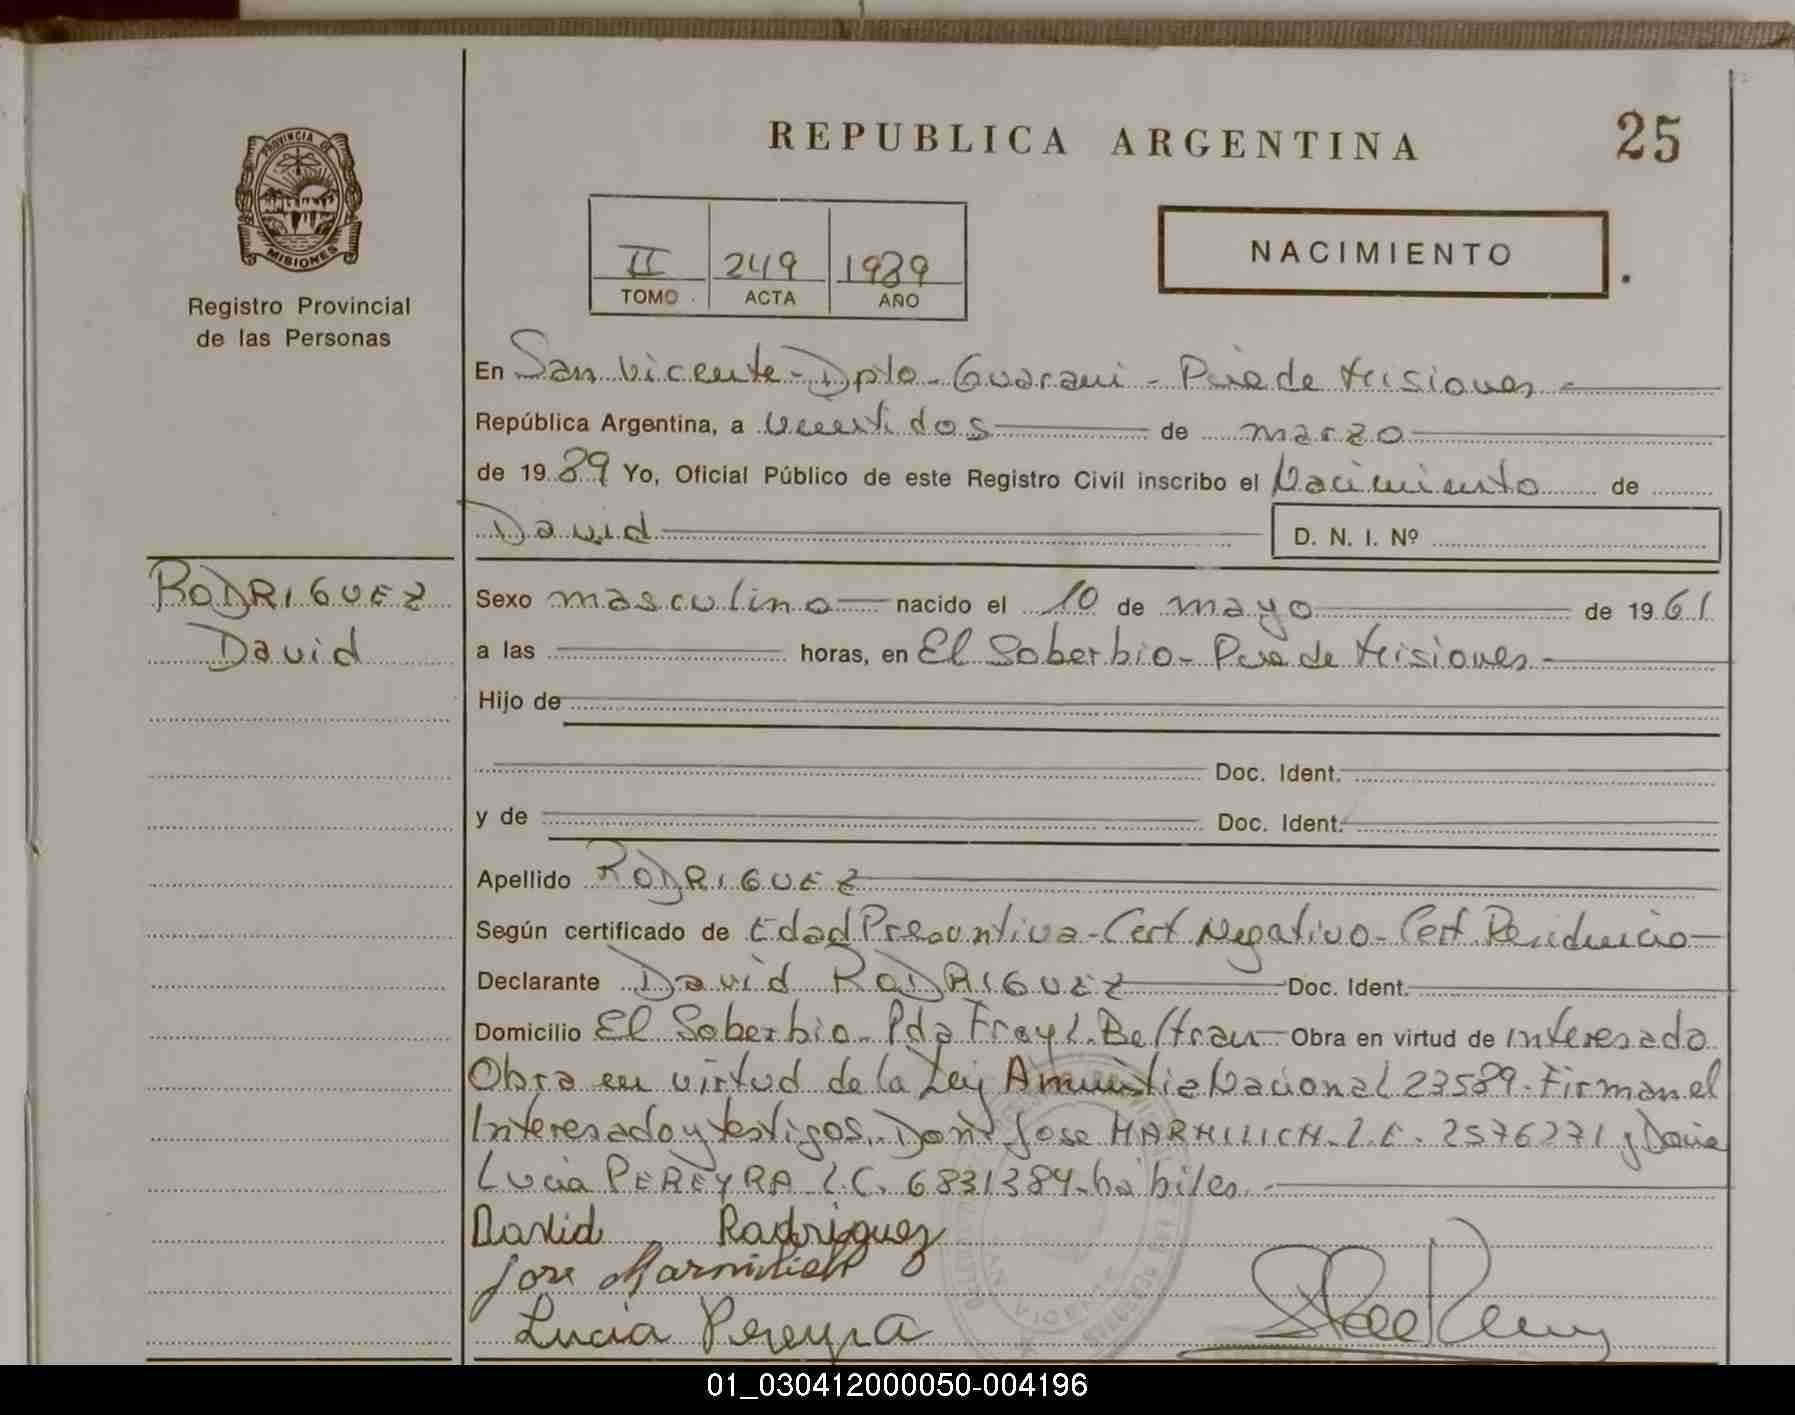 REPUBLICA ARGENTINA
25
PROVINCIA DE
MISIONES
Registro Provincial
de las Personas
II 249 1989
TOMO ACTA AÑO
NACIMIENTO
En San Vicente - Dpto - Guarani - Pcia de Misiones -
República Argentina, a veinti dos de marzo
de 1989 Yo, Oficial Público de este Registro Civil inscribo el Nacimiento de
David
D. N. I. Nº
RODRIGUEZ
David
Sexo masculino nacido el 10 de mayo de 1961
a las horas, en El Soberbio - Pcia de Misiones -
Hijo de
Doc. Ident.
y de Doc. Ident.
Apellido RODRIGUEZ
Según certificado de Edad Presuntiva - Cert Negativo - Cert. Residencia
Declarante David RODRIGUEZ Doc. Ident.
Domicilio El Soberbio - Pda Fray L. Beltran Obra en virtud de Interesado
Obra en virtud de la Ley Amnistia Nacional 23589 - Firman el
Interesado y testigos. Don: Jose MARMILICH - L.E. 2576271 y Doña
Lucia PEREYRA L.C. 6831384 - hábiles. -
David Rodriguez
Jose Marmilich
Lucia Pereyra
SAN VICENTE
01_030412000050-004196